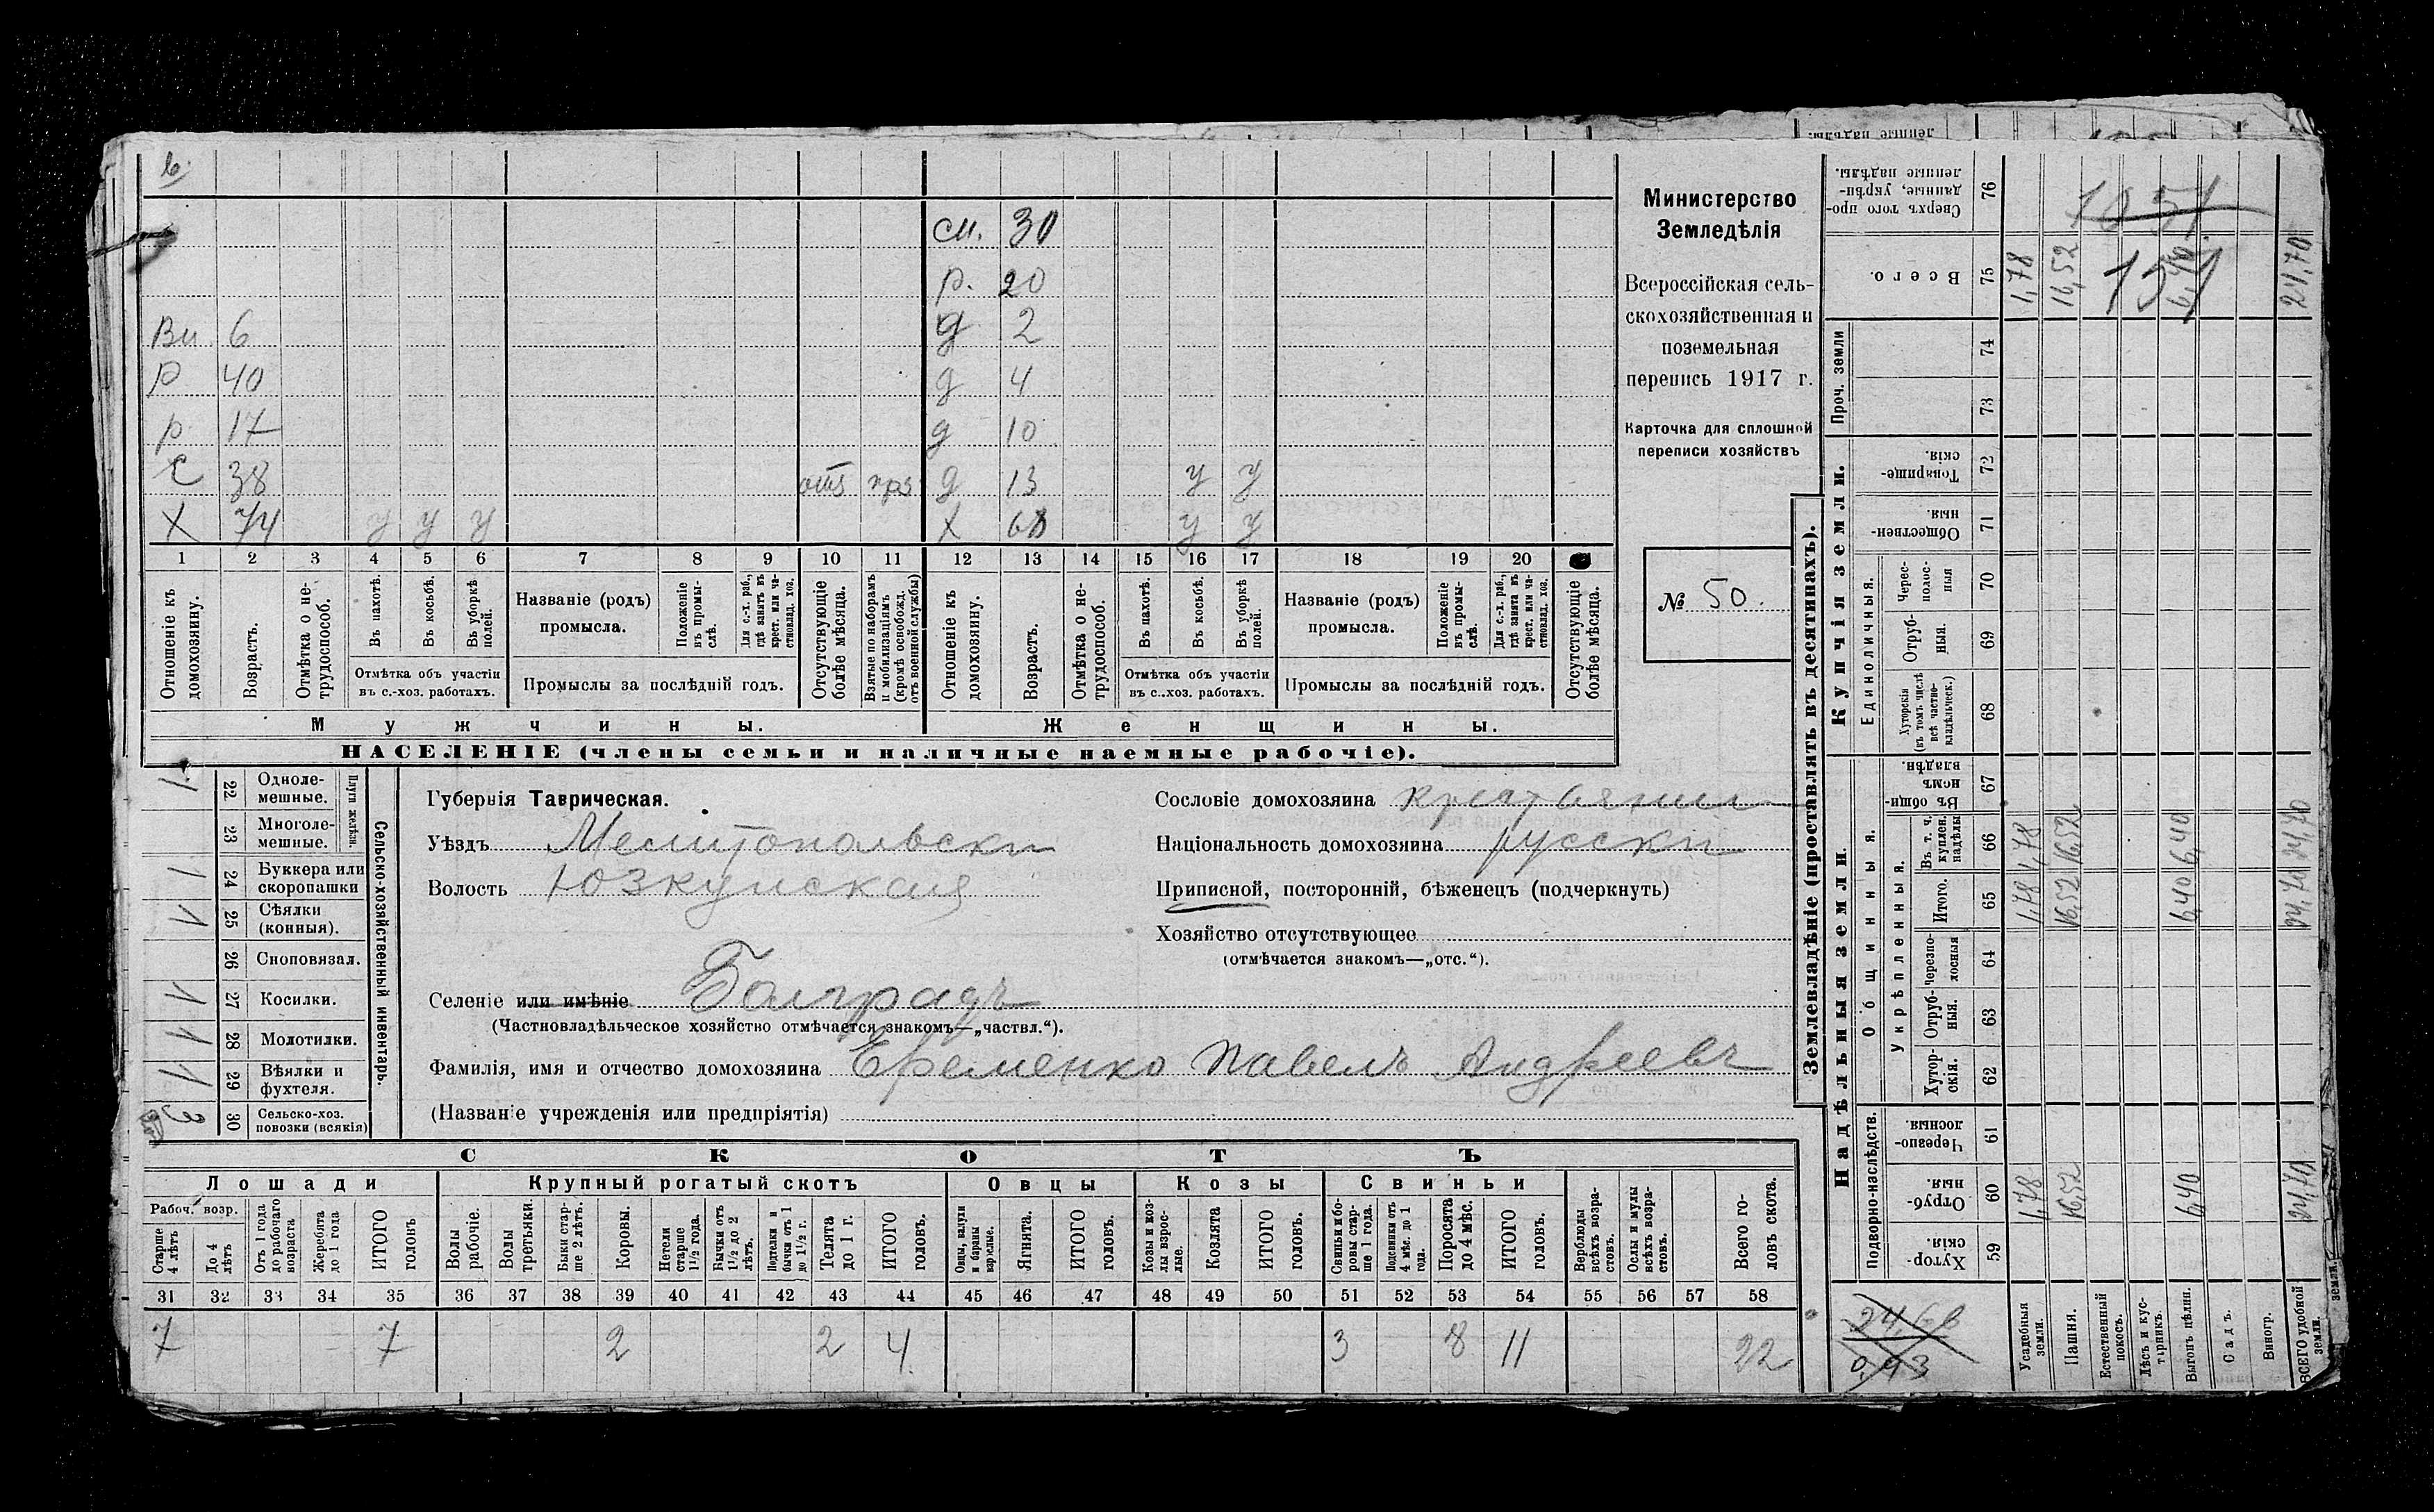 см. 30
р. 20
Вн 6 д 2
р 40 д 4
р 17 д 10
С 38 отс прз д 13 у у
Х 74 у у у Х 68 у у
1 2 3 4 5 6 7 8 9 10 11 12 13 14 15 16 17 18 19 20
Отношеніе къ домохозяину.
Возрастъ.
Отмѣтка о не-
трудоспособ.
Въ пахотѣ.
Въ косьбѣ.
Въ уборкѣ полей.
Отмѣтка объ участіи
въ с.-хоз. работахъ.
Названіе (родъ)
промысла.
Положеніе
въ промы-
слѣ.
Для с.-х. раб.,
гдѣ занятъ въ
крест. или ча-
стновлад. хоз.
Промыслы за послѣдній годъ.
Отсутствующіе
болѣе мѣсяца.
Взятые по наборамъ
и мобилизаціямъ
(кромѣ освобожд.
отъ военной службы)
Отношеніе къ
домохозяину.
Возрастъ.
Отмѣтка о не-
трудоспособ.
Въ пахотѣ.
Въ косьбѣ.
Въ уборкѣ
полей.
Отмѣтка объ участіи
въ с..хоз. работахъ.
Названіе (родъ)
промысла.
Положеніе
въ промы-
слѣ.
Для с.-х. раб.,
гдѣ занята въ
крест. или ча-
стновлад. хоз.
Промыслы за послѣдній годъ.
Отсутствующіе
болѣе мѣсяца.
Мужчины.
Женщины.
НАСЕЛЕНІЕ (члены семьи и наличные наемные рабочіе).
Министерство
Земледѣлія
Всероссійская сель-
скохозяйственная и
поземельная
перепись 1917 г.
Карточка для сплошной
переписи хозяйствъ
№ 50.
Сельско-хозяйственный инвентарь.
Плуги желѣзн.
1 22 Одноле-
мешные.
23 Многоле-
мешные.
1 24 Буккера или
скоропашки
1 25 Сѣялки
(конныя).
26 Сноповязал.
1 27 Косилки.
1 28 Молотилки.
1 29 Вѣялки и
фухтеля.
3 30 Сельско-хоз.
повозки (всякія)
Губернія Таврическая.
Уѣздъ Мелитопольски
Волость Юзкуйская
Селеніе или имѣніе Болградъ
(Частновладѣльческое хозяйство отмѣчается знакомъ—„частвл.“).
Фамилія, имя и отчество домохозяина Еременко Павелъ Андреевъ
(Названіе учрежденія или предпріятія)
Сословіе домохозяина крестьянин
Національность домохозяина русскі
Приписной, посторонній, бѣженецъ (подчеркнуть)
Хозяйство отсутствующее
(отмѣчается знакомъ—„отс.“).
СКОТЪ
Лошади Крупный рогатый скотъ Овцы Козы Свиньи
Рабоч. возр.
Старше
4 лѣтъ
До 4
лѣтъ
Отъ 1 года
до рабочаго
возраста
Жеребята
до 1 года
ИТОГО
головъ
Волы
рабочіе.
Волы
третьяки.
Быки стар-
ше 2 лѣтъ.
Коровы.
Нетели
старше
1½ года.
Бычки отъ
1½ до 2
лѣтъ.
Подтелки и
бычки отъ 1
до 1½ г.
Телята
до 1 г.
ИТОГО
головъ.
Овцы, валухи
и бараны
взрослые.
Ягнята.
ИТОГО
головъ.
Козы и коз-
лы взрос-
лые.
Козлята
ИТОГО
головъ.
Свиньи и бо-
ровы стар-
ше 1 года.
Подсвинки отъ
4 мѣс. до 1
года.
Поросята
до 4 мѣс.
ИТОГО
головъ.
Верблюды
всѣхъ возра-
стовъ.
Ослы и мулы
всѣхъ возра-
стовъ.
Всего го-
ловъ скота.
31 32 33 34 35 36 37 38 39 40 41 42 43 44 45 46 47 48 49 50 51 52 53 54 55 56 57 58
7 7 2 2 4 3 8 11 22
Землевладѣніе (проставлять въ десятинахъ).
Сверхъ того про-
данные, укрѣп-
ленные надѣлы.
76
Всего.
75 1,78 16,52 6,40 24,70
151
Проч. земли
74
73
Купчія земли.
Товарище-
скія.
72
Обществен-
ныя.
71
Единоличныя.
Черес-
полос-
ныя
70
Отруб-
ныя.
69
Хуторскія
(въ томъ числѣ
всѣ частно-
владѣльческ.)
68
Надѣльныя земли.
Общинныя.
Въ общин-
номъ
владѣн.
67
Укрѣпленныя.
Въ т. ч.
куплен.
надѣлы
66 1,78 16,52 6,40 24,70
Итого.
65 1,78 16,52 6,40 24,70
Черезпо-
лосныя
64
Отруб-
ныя.
63
Хутор-
скія.
62
Подворно-наслѣдств.
Черезпо-
лосныя
61
Отруб-
ныя.
60 1,78 16,52 6,40 24,70
Хутор-
скія.
59
24,68
0,93
Усадебныя
земли.
Пашня.
Естественный
покосъ.
Лѣсъ и кус-
тарникъ.
Выгонъ цѣлин.
Садъ.
Виногр.
ВСЕГО удобной
земли.